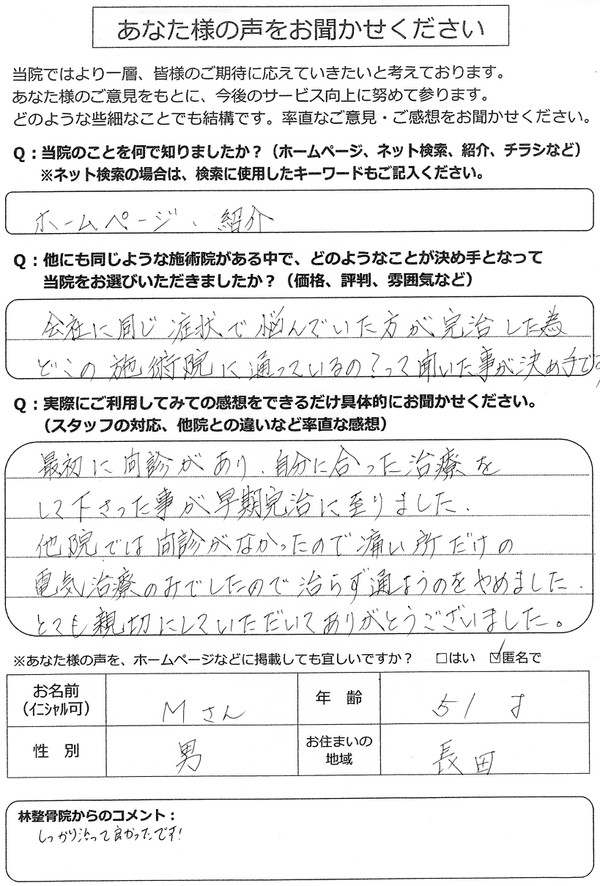 あなた様の声をお聞かせください
当院ではより一層、皆様のご期待に応えていきたいと考えております。
あなた様のご意見をもとに、今後のサービス向上に努めて参ります。
どのような些細なことでも結構です。率直なご意見・ご感想をお聞かせください。
Q：当院のことを何で知りましたか？（ホームページ、ネット検索、紹介、チラシなど）
※ネット検索の場合は、検索に使用したキーワードもご記入ください。
ホームページ、紹介
Q：他にも同じような施術院がある中で、どのようなことが決め手となって
当院をお選びいただきましたか？（価格、評判、雰囲気など）
会社に同じ症状で悩んでいた方が完治した為
どこの施術院に通っているの？って聞いた事が決め手です
Q：実際にご利用してみての感想をできるだけ具体的にお聞かせください。
（スタッフの対応、他院との違いなど率直な感想）
最初に問診があり、自分に合った治療を
して下さった事が早期完治に至りました。
他院では問診がなかったので痛い所だけの
電気治療のみでしたので治らず通ようのをやめました。
とても親切にしていただいてありがとうございました。
※あなた様の声を、ホームページなどに掲載しても宜しいですか？ □はい ☑匿名で
お名前 Mさん 年 齢 51才
（ｲﾆｼｬﾙ可）
性 別 男 お住まいの 長田
地域
林整骨院からのコメント：
しっかり治って良かったです!